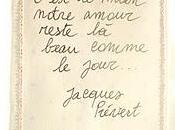 notre amour
reste là
beau comme
le jour...
Jacques
Prévert